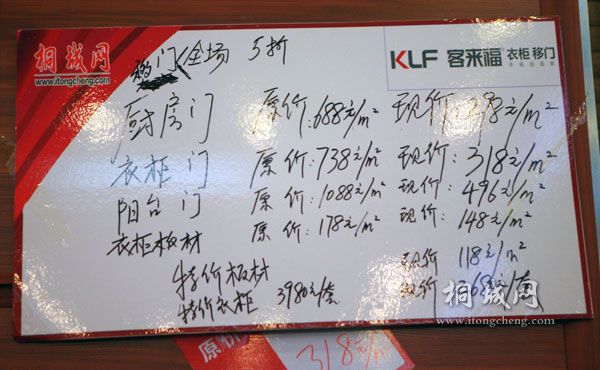 桐城网
www.itongcheng.com
KLF 客来福 衣柜 移门
移门全场 5折
厨房门 原价:688元/m² 现价:298元/m²
衣柜门 原价:738元/m² 现价:318元/m²
阳台门 原价:1088元/m² 现价:496元/m²
衣柜板材 原价:178元/m² 现价:148元/m²
特价板材 现价 118元/m²
特价衣柜 3980元/套 现价 68元/套
桐城网
www.itongcheng.com
原价
318元/m²